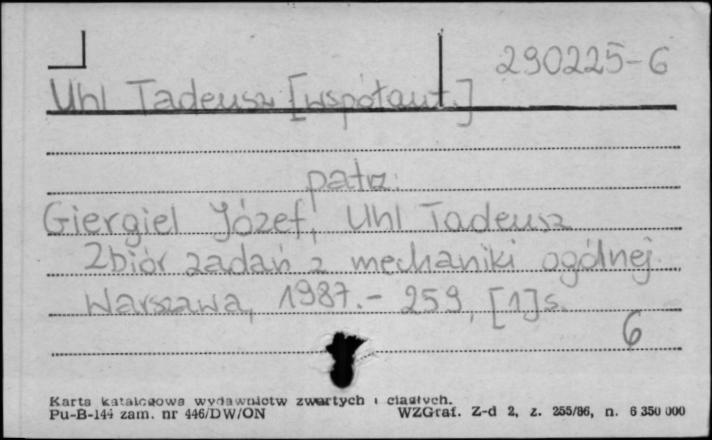 290225-6
Uhl Tadeusz [współaut.]
patrz:
Giergiel Józef, Uhl Tadeusz
Zbiór zadań z mechaniki ogólnej.
Warszawa, 1987.- 259, [1] s.
6
Karta katalogowa wydawnictw zwartych i ciągłych.
Pu-B-144 zam. nr 446/DW/ON WZGraf. Z-d 2, z. 255/86, n. 6 350 000